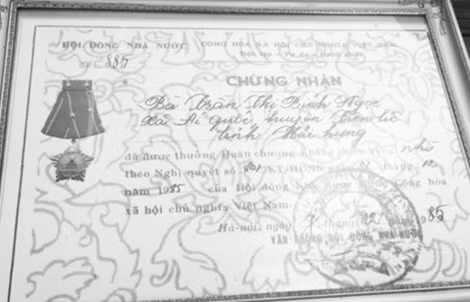 HỘI ĐỒNG NHÀ NƯỚC CỘNG HÒA XÃ HỘI CHỦ NGHĨA VIỆT NAM
Số 885
CHỨNG NHẬN
Bà Trần Thị Bính Ngọc
Xã Ái Quốc, huyện Tiên Lữ
tỉnh Hải Hưng
đã được thưởng Huân chương Kháng chiến hạng nhì
theo Nghị quyết số KT/HĐNN ngày 01 tháng 12
năm 1985 của Hội đồng Nhà nước Cộng hòa
xã hội chủ nghĩa Việt Nam.
Hà-nội, ngày 7 tháng 12 năm 1985
VĂN PHÒNG HỘI ĐỒNG NHÀ NƯỚC